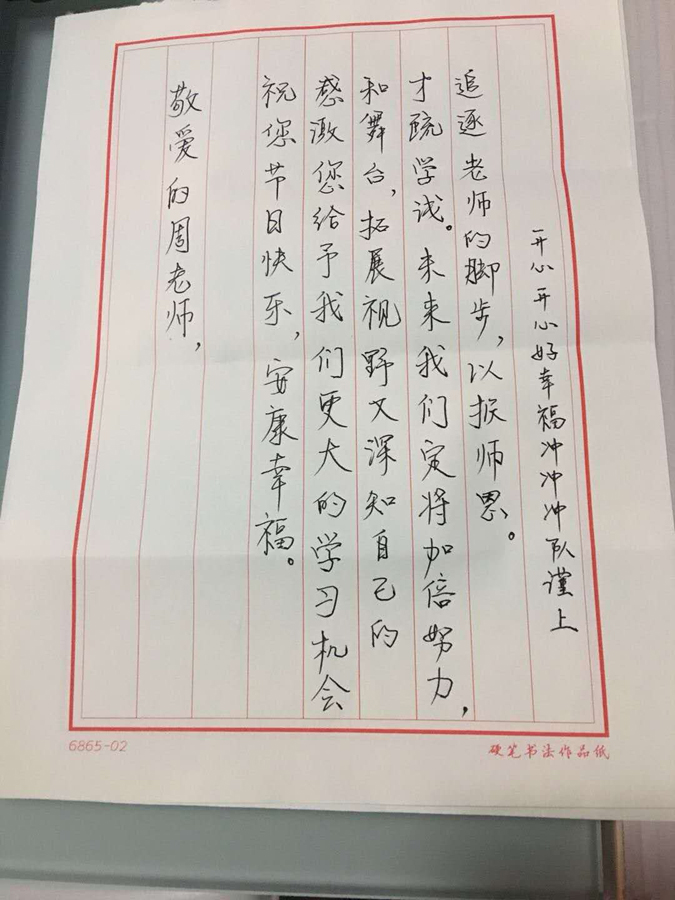 敬爱的周老师，
祝您节日快乐，安康幸福。
感激您给予我们更大的学习机会
和舞台，拓展视野又深知自己的
才疏学浅。未来我们定将加倍努力，
追逐老师的脚步，以报师恩。
开心开心好幸福冲冲冲队谨上
6865-02
硬笔书法作品纸